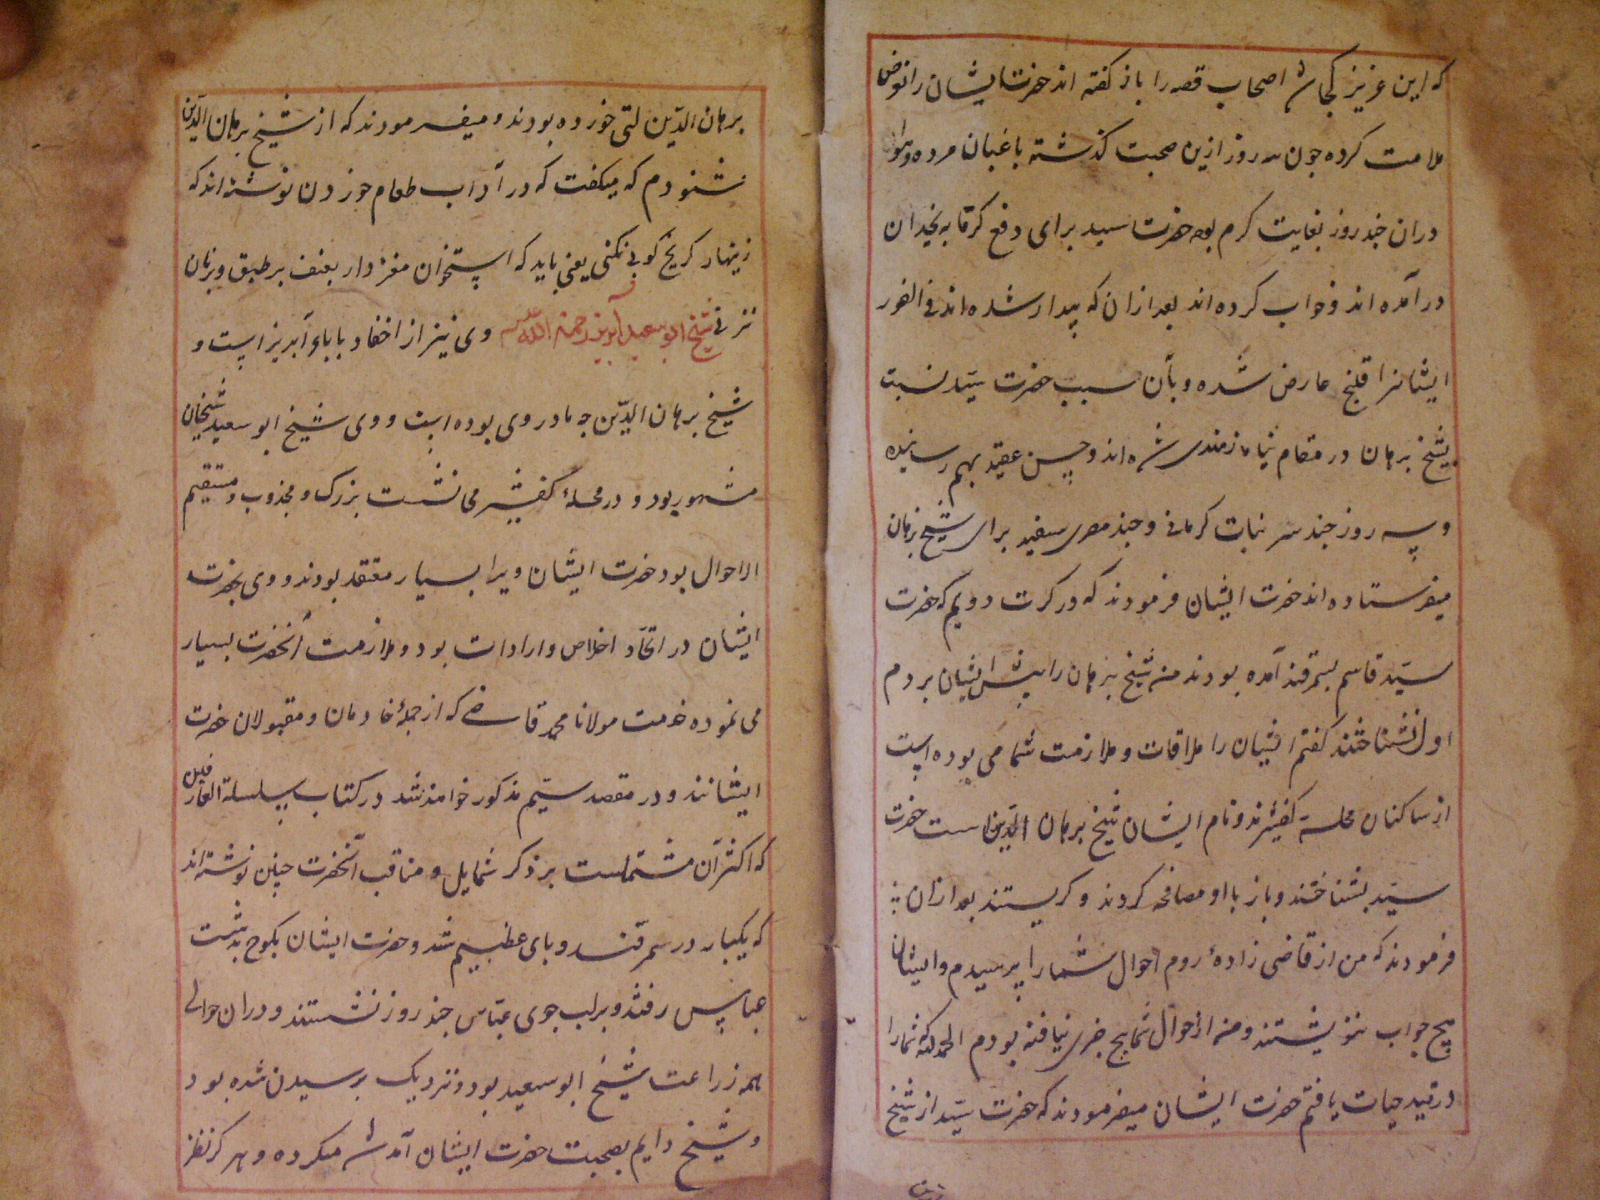 که این عزیز کجا شد اصحاب قصه را باز گفته اند حضرت ایشان را
ملامت کرده چون سه روز ازین صحبت گذشته باغبان مرده و هوا
دران چند روز بغایت گرم بوده حضرت سید برای دفع گرما به یخدان
درآمده اند و خواب کرده اند بعد ازان که بیدار شده اند فی الفور
ایشانرا قلنج عارض شده و بآن سبب حضرت سید نسبت
بشیخ برهان در مقام نیازمندی شده اند و حسن عقیده بهم رسانیده
و سه روز چند سر نبات کرمانی و چند مصری سفید برای شیخ برهان
میفرستاده اند حضرت ایشان فرمودند که در کرت دویم که حضرت
سید قاسم بسمرقند آمده بودند من شیخ برهان را پیش ایشان بردم
اول نشناختند گفتم ایشان را ملاقات و ملازمت شما می بوده است
از ساکنان محله کفشیرند و نام ایشان شیخ برهان الدین است حضرت
سید بشناختند و باز با او مصافحه کردند و گریستند بعد ازان
فرمودند که من از قاضی زاده روم احوال شما را پرسیدم و ایشان
هیچ جواب ننوشتند و من از احوال شما هیچ خبری نیافته بودم الحمدلله که شما را
در قید حیات یافتم حضرت ایشان میفرمودند که حضرت سید از شیخ
برهان الدین لتی خورده بودند و میفرمودند که از شیخ برهان الدین
شنودم که میگفت که در آداب طعام خوردن نوشته اند که
زینهار کریخ کوبی نکنی یعنی باید که استخوان مغزدار بعنف بر طبق و برنان
نزنی شیخ ابو سعید آبریز رحمة الله وی نیز از احفاد باباء آبریز است و
شیخ برهان الدین جد مادر وی بوده است و وی شیخ ابو سعید شیخان
مشهور بود و در محله کفشیر می نشست بزرگ و مجذوب و مستقیم
الاحوال بود حضرت ایشان ویرا بسیار معتقد بودند و وی بحضرت
ایشان در اتحاد اخلاص و ارادات بود و ملازمت آنحضرت بسیار
می نموده خدمت مولانا محمد قاضی که از جمله خادمان و مقبولان حضرت
ایشانند و در مقصد سیم مذکور خواهند شد در کتاب سلسلة العارفین
که اکثر آن مشتملست بر ذکر شمایل و مناقب آنحضرت چنین نوشته اند
که یکبار در سمرقند وبای عظیم شد و حضرت ایشان بکوچ بدشت
عباس رفتند و بر لب جوی عباس چند روز نشستند و دران حوالی
همه زراعت شیخ ابو سعید بود و نزدیک برسیدن شده بود
و شیخ دایم بصحبت حضرت ایشان آمد شد میکرده و هر گز نظر